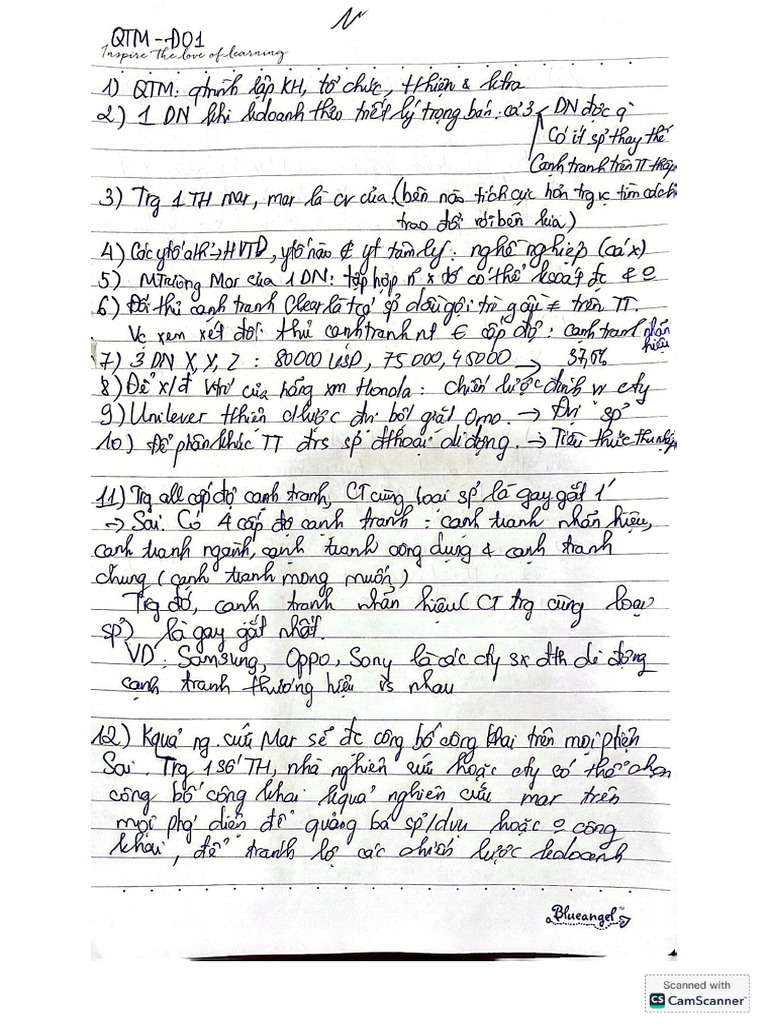 QTM - Đ01
Inspire The love of learning
1) QTM: qtrình lập KH, tổ chức, thiện & ktra
2) 1 DN khi kdoanh theo triết lý trọng bán: cả 3 DN độc q
Có ít sp thay thế
Cạnh tranh trên TT thấp
3) Trg 1 TH mar, mar là cv của (bên nào tích cực hơn trg vc tìm cách
trao đổi với bên kia)
4) Các ytố a/h → HVTD, ytố nào ∉ yt tâm lý: nghề nghiệp (cá x)
5) MTrường Mar của 1 DN: tập hợp n x đó có thể ksoát đc & o
6) Đối thủ cạnh tranh Clear là tcả sp dầu gội trị gàu ≠ trên TT.
Vc xem xét đối thủ cạnh tranh nt ∈ cấp độ: cạnh tranh nhãn hiệu
7) 3 DN X, Y, Z: 80000 USD, 75000, 45000 → 37,5%
8) Để x/đ vtrí của hãng xm Honda: chiến lược định vị cty
9) Unilever thiên clược đvị bột giặt Omo. → Đvị sp
10) Để phân khúc TT đvs sp đthoại di động. → Tiêu thức thu nhập
11) Trg all cấp độ cạnh tranh, CT cùng loại sp là gay gắt 1'
→ Sai. Có 4 cấp độ cạnh tranh: cạnh tranh nhãn hiệu,
cạnh tranh ngành, cạnh tranh công dụng & cạnh tranh
chung (cạnh tranh mong muốn)
Trg đó, cạnh tranh nhãn hiệu (CT trg cùng loại
sp) là gay gắt nhất.
VD: Samsung, Oppo, Sony là các cty sx đth di động
cạnh tranh thương hiệu vs nhau
12) Kquả ng. cứu Mar sẽ đc công bố công khai trên mọi phtiện
Sai. Trg 1 số TH, nhà nghiên cứu hoặc cty có thể chọn
công bố công khai kquả nghiên cứu mar trên
mọi phg diện để quảng bá sp/dvụ hoặc o công
khai, để tránh lộ các chiến lược kdoanh
Blueangel
Scanned with
CS CamScanner